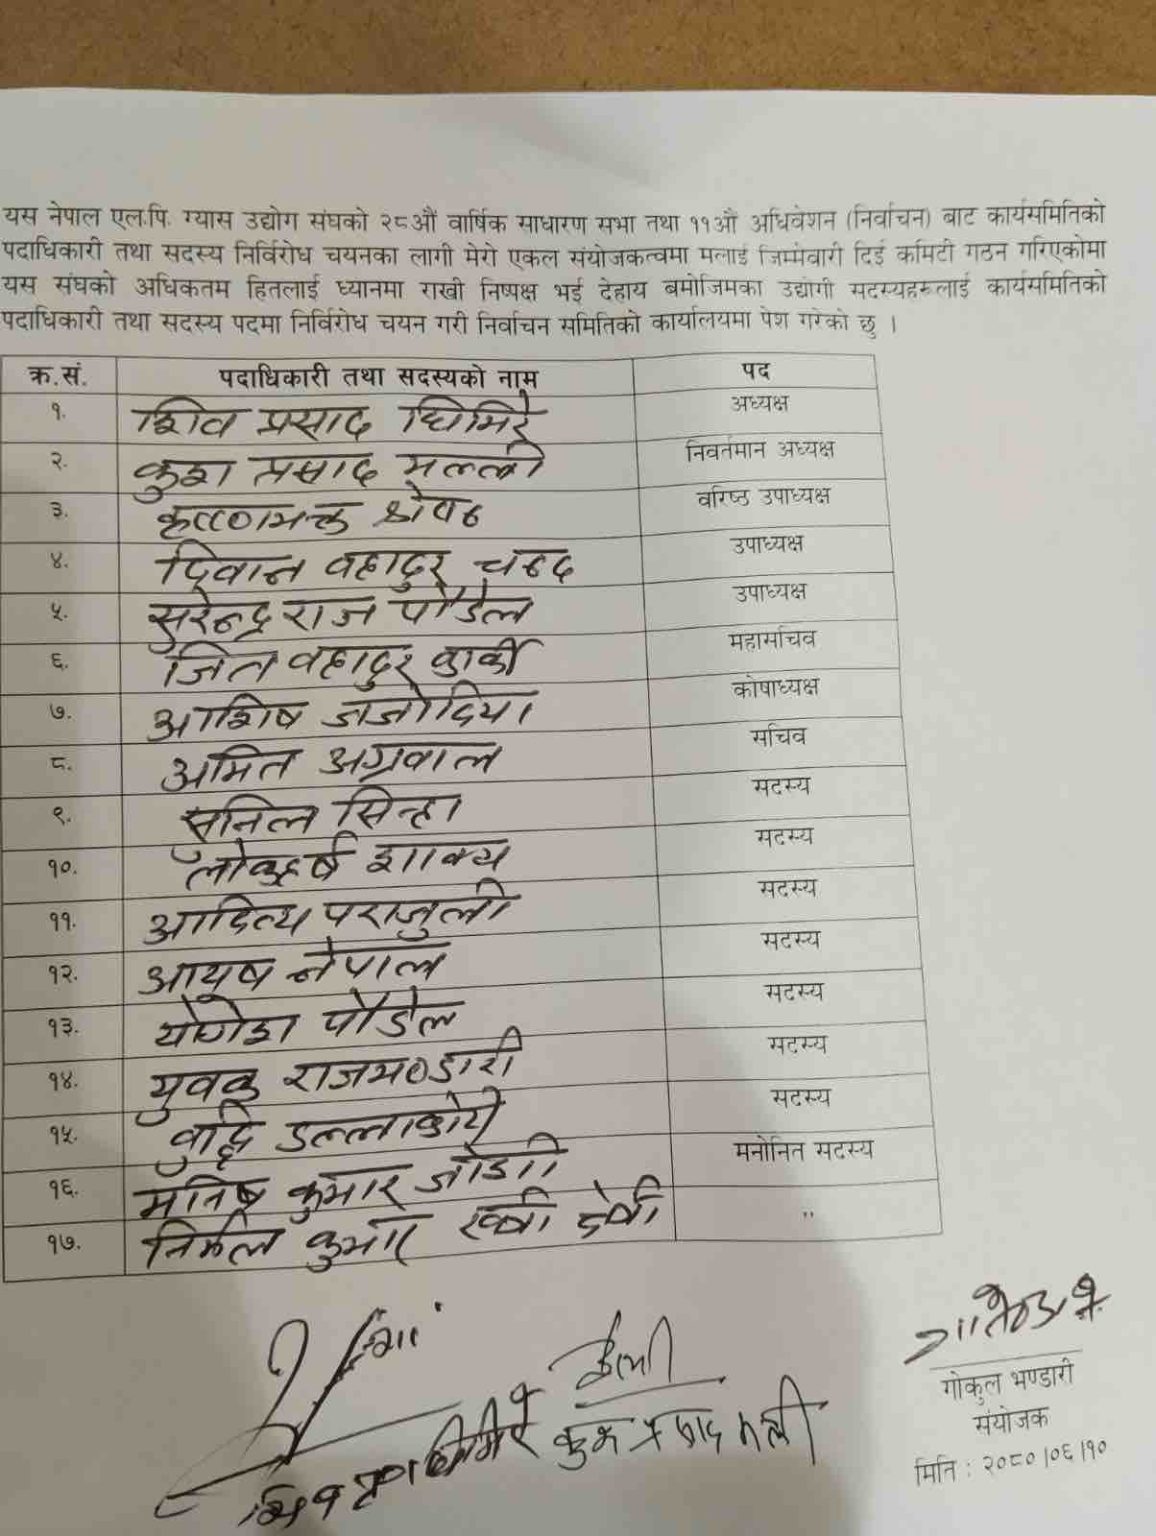 यस नेपाल एल.पि. ग्यास उद्योग संघको २८औं वार्षिक साधारण सभा तथा ११औ अधिवेशन (निर्वाचन) बाट कार्यसमितिको
पदाधिकारी तथा सदस्य निर्विरोध चयनका लागी मेरो एकल संयोजकत्वमा मलाई जिम्मेवारी दिई कमिटी गठन गरिएकोमा
यस संघको अधिकतम हितलाई ध्यानमा राखी निष्पक्ष भई देहाय बमोजिमका उद्योगी सदस्यहरुलाई कार्यसमितिको
पदाधिकारी तथा सदस्य पदमा निर्विरोध चयन गरी निर्वाचन समितिको कार्यालयमा पेश गरेको छु ।
क्र.सं. पदाधिकारी तथा सदस्यको नाम पद
१. शिव प्रसाद घिमिरे अध्यक्ष
२. कुश प्रसाद मल्ली निवर्तमान अध्यक्ष
३. कृष्णभक्त श्रेष्ठ वरिष्ठ उपाध्यक्ष
४. दिवान वहादुर चन्द उपाध्यक्ष
५. सुरेन्द्र राज पौडेल उपाध्यक्ष
६. जित वहादुर कार्की महासचिव
७. आशिष जजोदिया कोषाध्यक्ष
८. अमित अग्रवाल सचिव
९. सुनिल सिन्हा सदस्य
१०. लोकहर्ष शाक्य सदस्य
११. आदित्य पराजुली सदस्य
१२. आयुष नेपाल सदस्य
१३. योगेश पौडेल सदस्य
१४. युवक राजभण्डारी सदस्य
१५. वुद्धि डल्लाकोटी सदस्य
१६. मनिष कुमार जोशी मनोनित सदस्य
१७. निर्मल कुमार ''
शिव प्रसाद घिमिरे
कुश प्रसाद मल्ली
गोकुल भण्डारी
संयोजक
मिति : २०८०।०६।१०